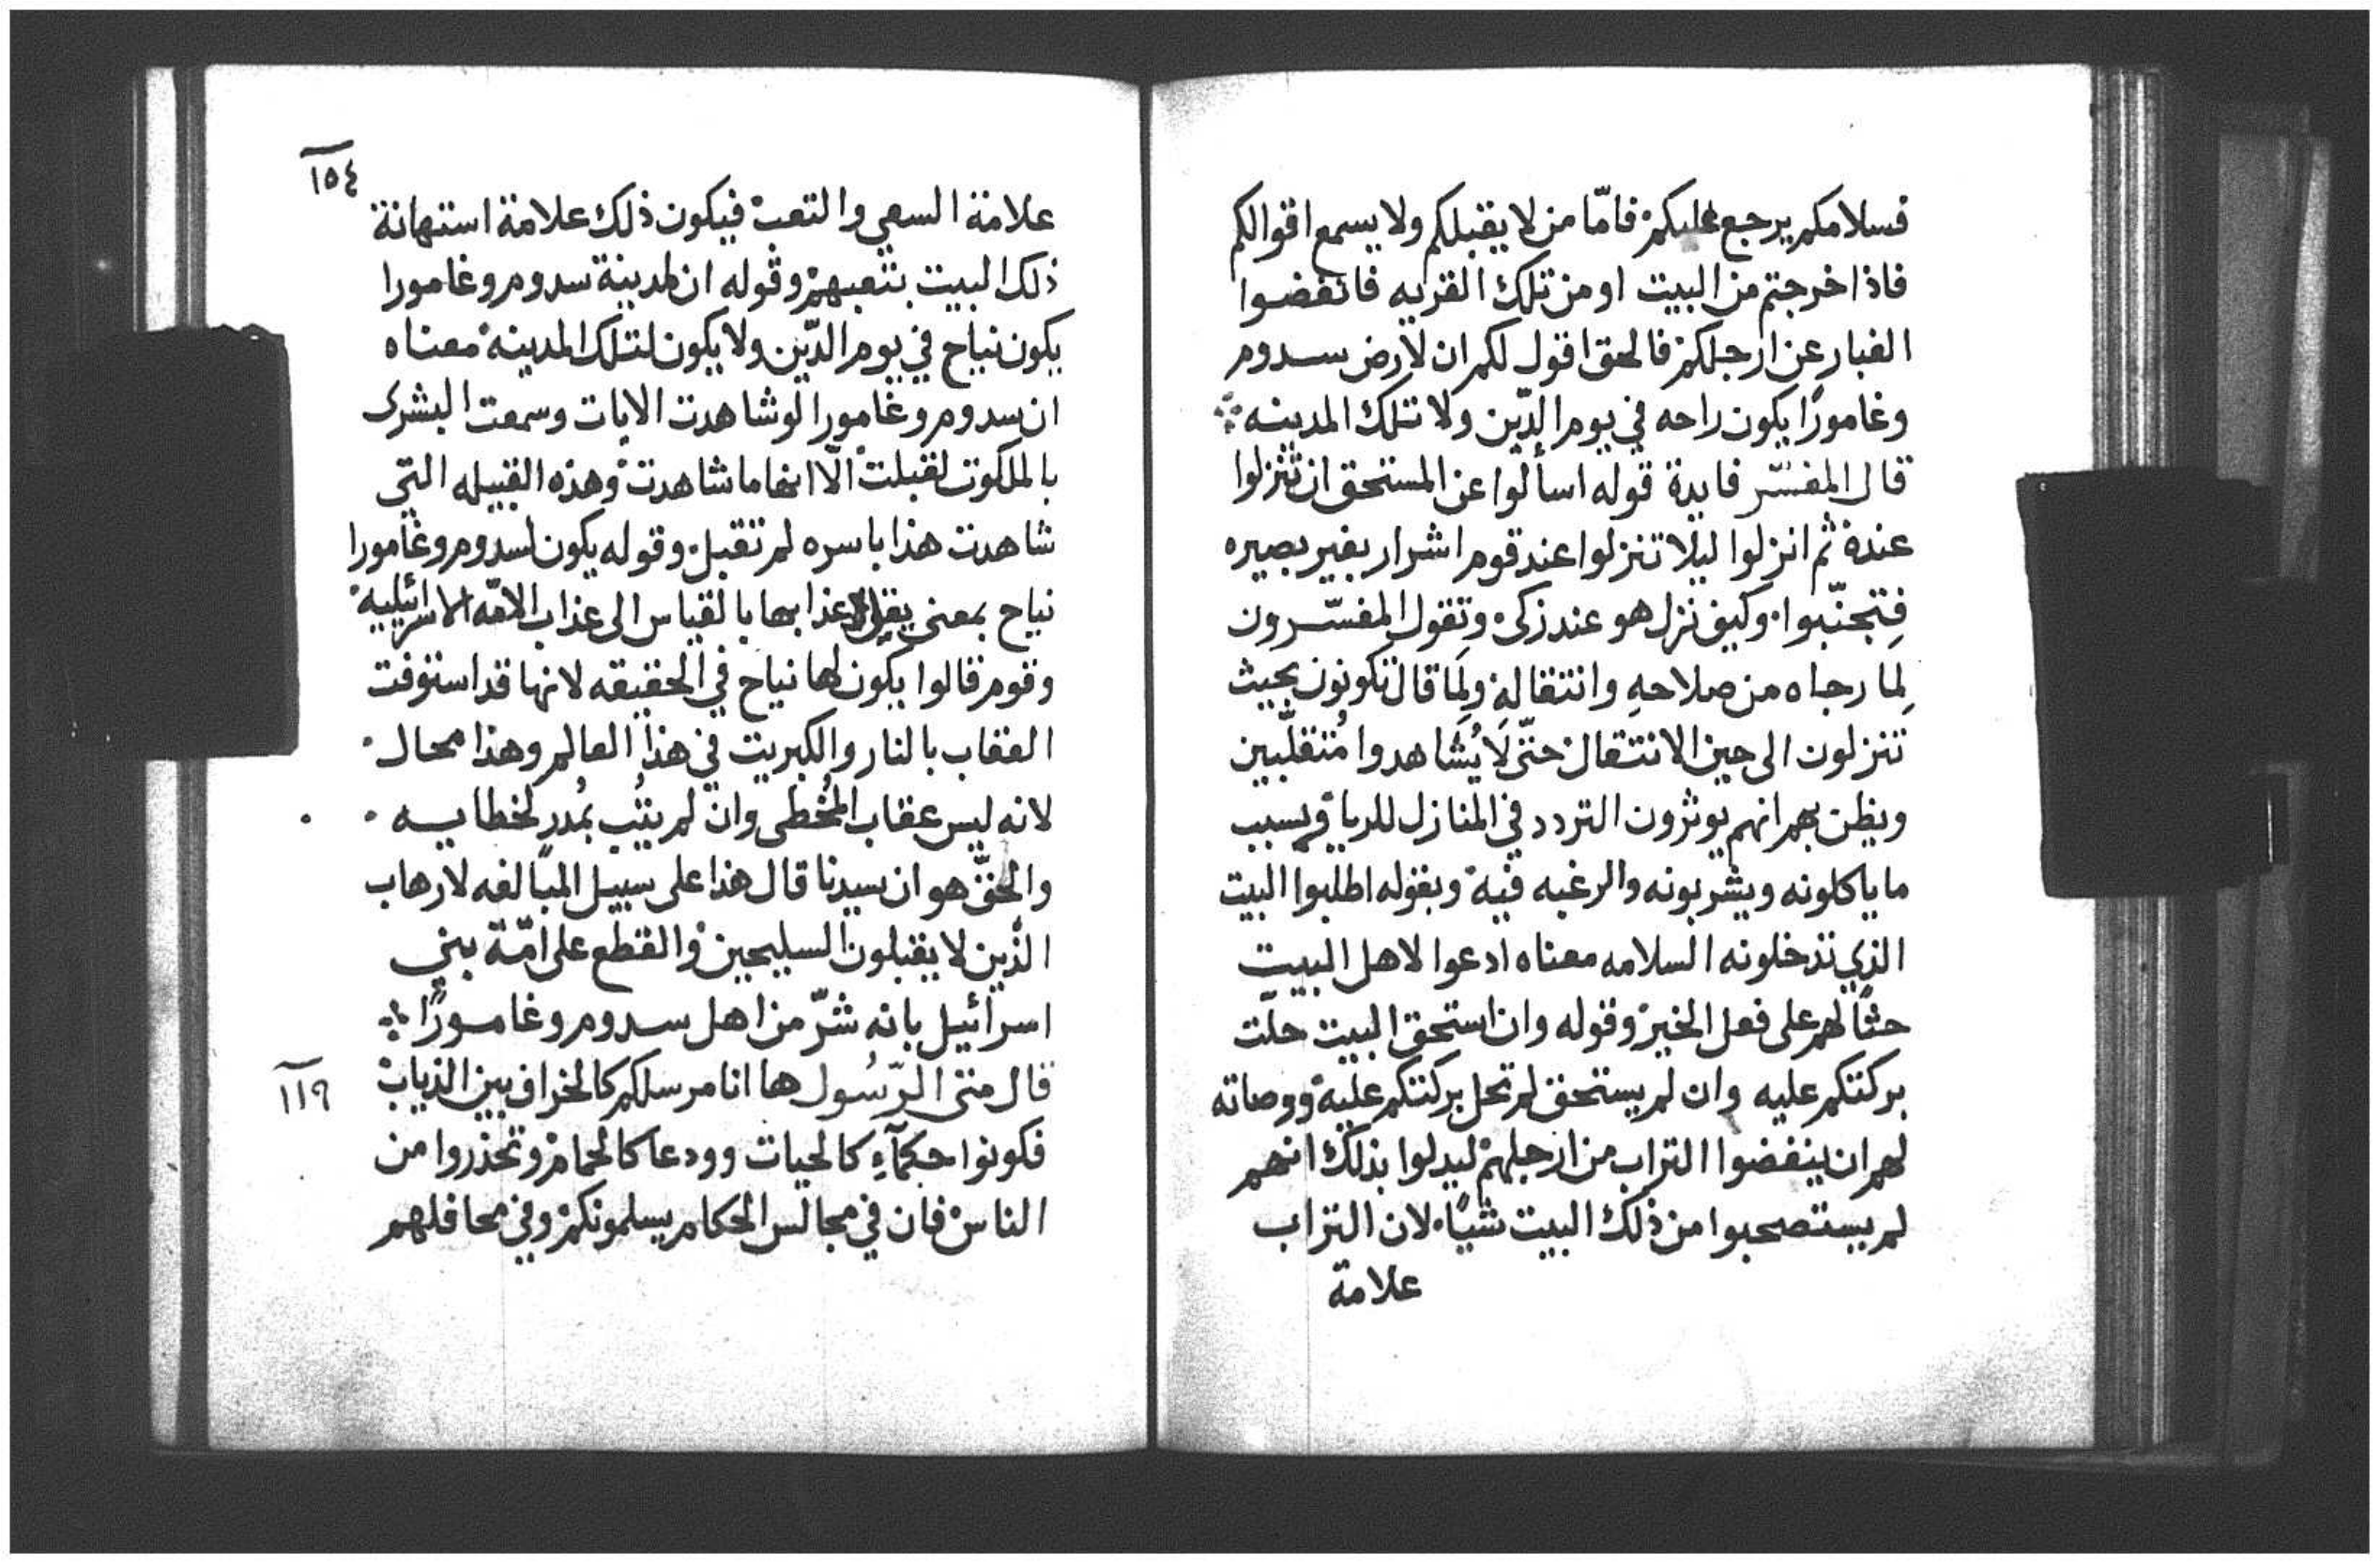 فسلامكم يرجع عليكم فامّا من لا يقبلكم ولا يسمع اقوالكم
فاذا خرجتم من البيت او من تلك القريه فانفضوا
الغبار عن ارجلكم فالحق اقول لكم ان لارض سدوم
وغامورًا يكون راحه في يوم الدّين ولا تلك المدينه
قال المفسّر فايدة قوله اسألوا عن المستحق ان تنزلوا
عنده ثم انزلوا ليلا تنزلوا عند قوم اشرار بغير بصيره
فتجنّبوا وكيف نزل هو عند زكى وتقول المفسّرون
لِما رجاه من صلاحهِ وانتقالهِ ولِمَا قال تكونون بحيث
تنزلون الى حين الانتقال حتّى لَا يُشاهدوا مُتنقلّبين
ويظن بهم انهم يوثرون التردد في المنازل للريا وبسبب
ما ياكلونه ويشربونه والرغبه فيه وبقوله اطلبوا البيت
الذي تدخلونه السلامه معناه ادعوا لاهل البيت
حثًا لهم على فعل الخير وقوله وان استحق البيت حلّت
بركتكم عليه وان لم يستحق لم تحل بركتكم عليه ووصاته
لهم ان ينفضوا التراب من ارجلهم ليدلوا بذلك انهم
لم يستصحبوا من ذلك البيت شيًا لان التراب
علامة
١٥٤
علامة السعي والتعب فيكون ذلك علامة استهانة
ذلك البيت بتعبهم وقوله ان لمدينة سدوم وغامورا
يكون نياح في يوم الدّين ولا يكون لتلك المدينه معناه
ان سدوم وغامورا لو شاهدت الايات وسمعت البشرى
بالملكوت لقبلت الّا انها ما شاهدت وهذه القبيله التي
شاهدت هذا باسره لم تقبل وقوله يكون لسدوم وغامورا
نياح بمعنى يقل عذابها بالقياس الى عذاب الامّه الاسرائيليه
وقوم قالوا يكون لها نياح في الحقيقه لانها قد استوفت
العقاب بالنار والكبريت في هذا العالم وهذا محال
لانه ليس عقاب المُخطى وان لم يتُب بمُدرٍ لخطاييه
والحقّ هو ان سيدنا قال هذا على سبيل المبالغه لارهاب
الّذين لا يقبلون السليحين والقطع على امّة بني
اسرائيل بانه شرّ من اهل سدوم وغامورًا
قال متى الرّسُول ها انا مرسلكم كالخراف بين الذياب
١١٩
فكونوا حكمآءِ كالحيات وودعا كالحمام وتحذروا من
الناس فان في مجالس الحكام يسلمونكم وفي محافلهم